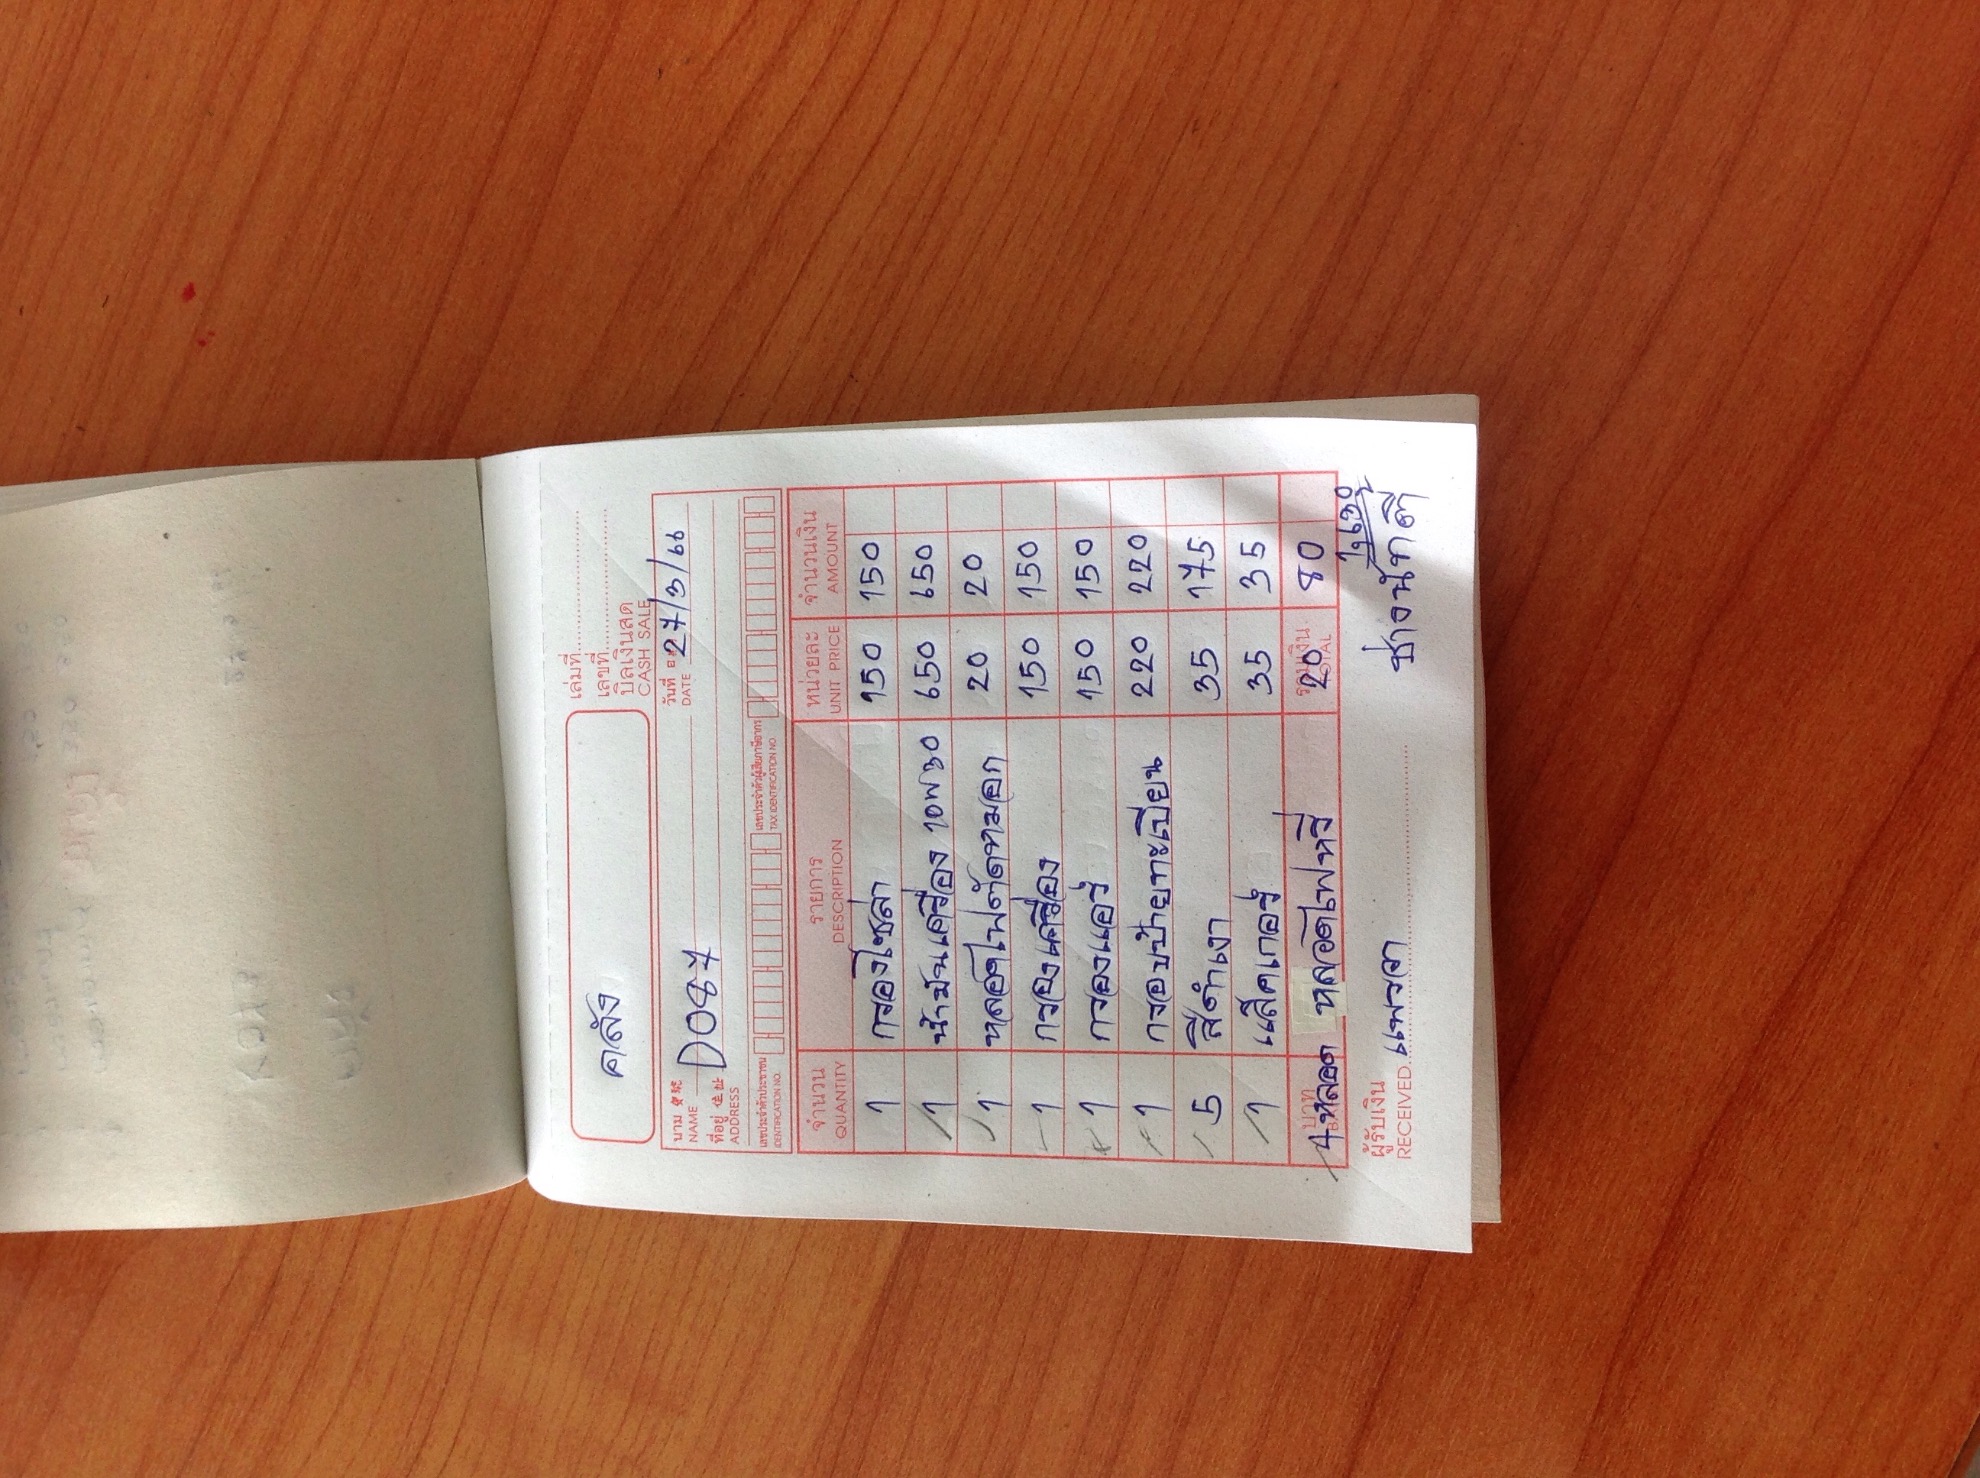 คลัง
เล่มที่
เลขที่
บิลเงินสด
CASH SALE
นาม
NAME
D087
วันที่
DATE 27/3/66
ที่อยู่ 住址
ADDRESS
เลขประจำตัวประชาชน
IDENTIFICATION NO.
เลขประจำตัวผู้เสียภาษีอากร
TAX IDENTIFICATION NO.
จำนวน รายการ หน่วยละ จำนวนเงิน
QUANTITY DESCRIPTION UNIT PRICE AMOUNT
1 กรองโซล่า 150 150
1 น้ำมันเครื่อง 10W30 650 650
1 หลอดไฟตัดหมอก 20 20
1 กรองเครื่อง 150 150
1 กรองแอร์ 150 150
1 กรอบป้ายทะเบียน 220 220
5 สีดำเงา 35 175
1 แล็คเกอร์ 35 35
4 หลอด หลอดไฟหรี่ 20 80
บาท รวมเงิน
TOTAL
ผู้รับเงิน
RECEIVED แพรวา
ช่างนัทตี